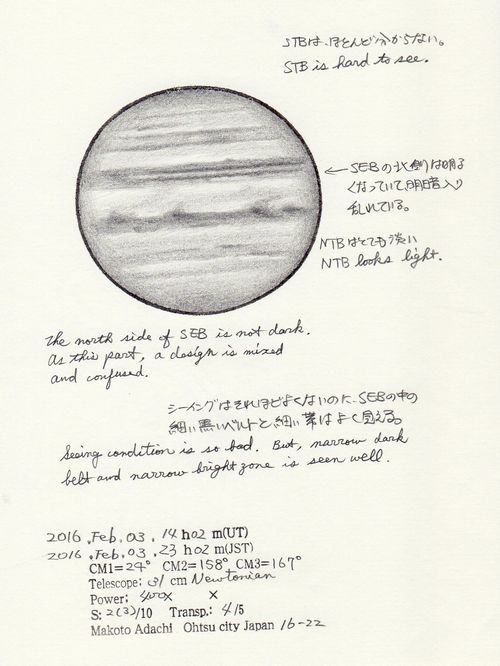 STBは、ほとんど分からない。
STB is hard to see.
←SEBの北側は明る
くなっていて、明暗入り
乱れている。
NTBはとても淡い
NTB looks light.
The north side of SEB is not dark.
As this part, a design is mixed
and confused.
シーイングはそれほどよくないのに、SEBの中の
細い黒いベルトと細い帯はよく見える。
Seeing condition is so bad. But, narrow dark
belt and narrow bright zone is seen well.
2016.Feb.03.14h02m(UT)
2016.Feb.03.23h02m(JST)
CM1=24° CM2=158° CM3=167°
Telescope: 31 cm Newtonian
Power: 400x x
S: 2(3)/10 Transp.: 4/5
Makoto Adachi Ohtsu city Japan 16-22